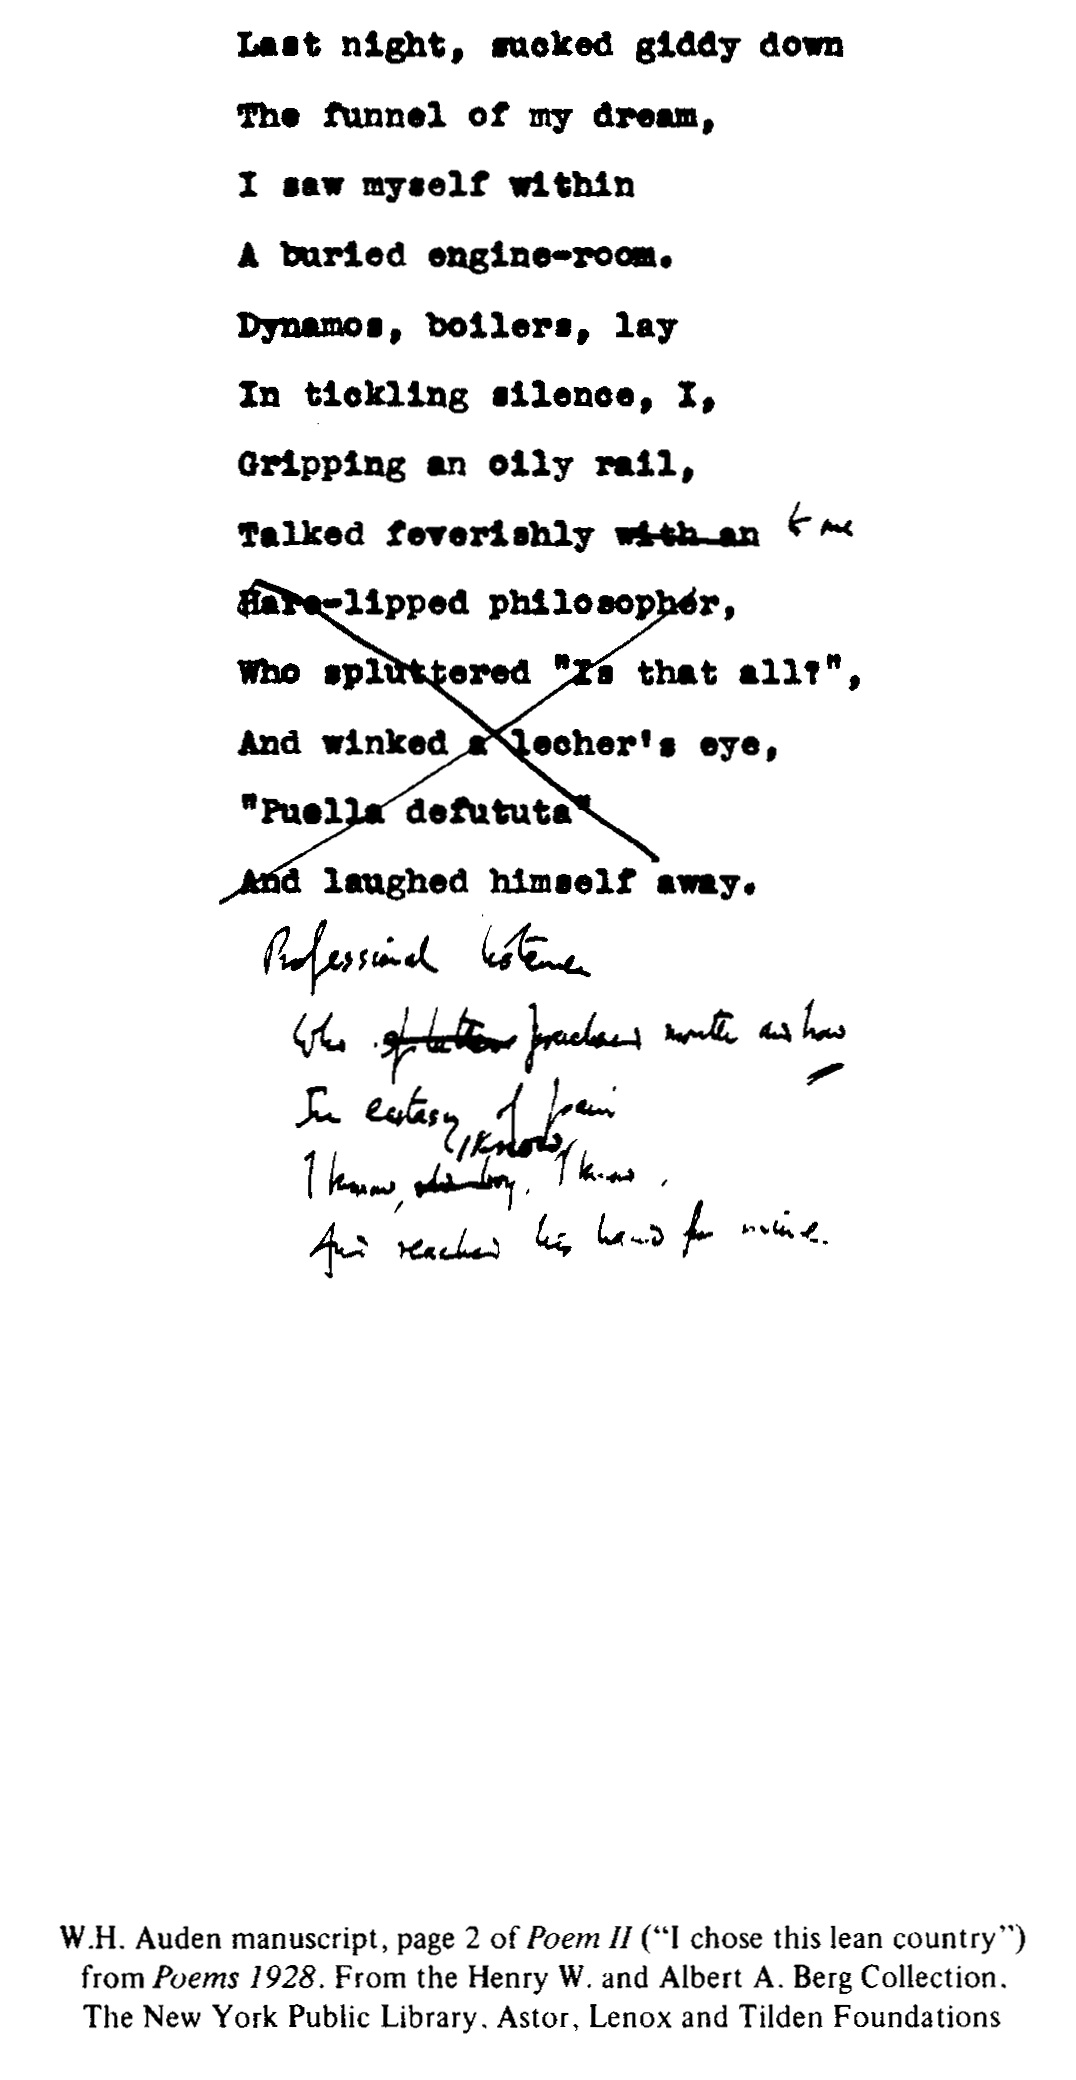 Last night, sucked giddy down
The funnel of my dream,
I saw myself within
A buried engine-room.
Dynamos, boilers, lay
In tickling silence, I,
Gripping an oily rail,
Talked feverishly with an to one
Hare-lipped philosopher,
Who spluttered "Is that all?",
And winked a lecher's eye,
"Puella defututa"
And laughed himself away.
Professional listener
Who puckered mouth and brow
In ecstasy of pain
I know,
I know, I know,
And reached his hand for mine.
W.H. Auden manuscript, page 2 of Poem II (“I chose this lean country”)
from Poems 1928. From the Henry W. and Albert A. Berg Collection.
The New York Public Library. Astor, Lenox and Tilden Foundations